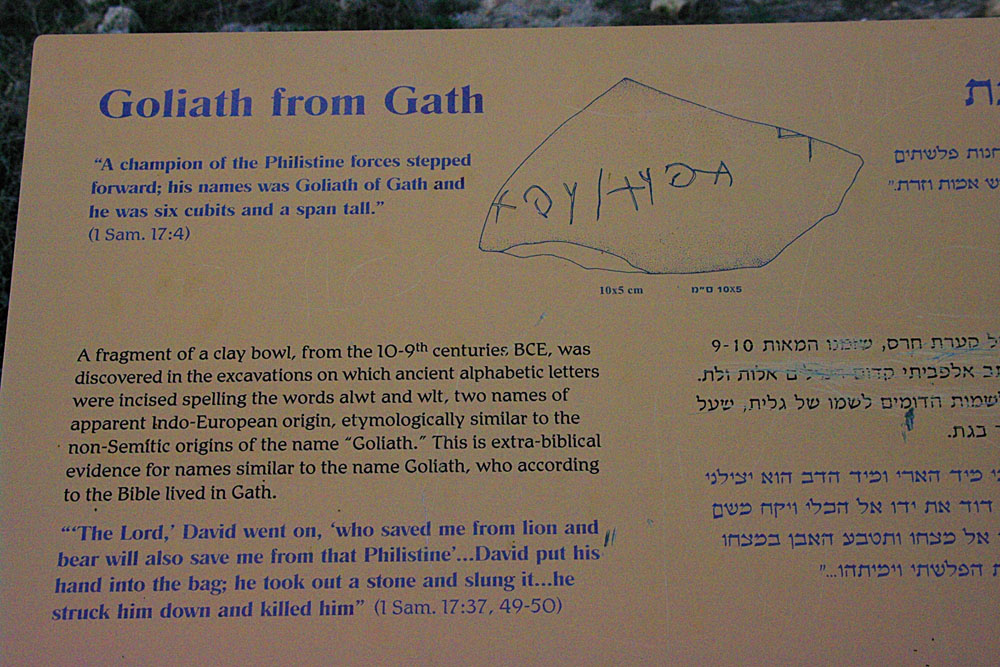 Goliath from Gath
"A champion of the Philistine forces stepped
forward; his names was Goliath of Gath and
he was six cubits and a span tall."
(1 Sam. 17:4)
10x5 cm
10x5 ס"מ
A fragment of a clay bowl, from the 10-9th centuries BCE, was
discovered in the excavations on which ancient alphabetic letters
were incised spelling the words alwt and wlt, two names of
apparent Indo-European origin, etymologically similar to the
non-Semitic origins of the name "Goliath." This is extra-biblical
evidence for names similar to the name Goliath, who according
to the Bible lived in Gath.
"'The Lord,' David went on, 'who saved me from lion and
bear will also save me from that Philistine'...David put his
hand into the bag; he took out a stone and slung it...he
struck him down and killed him" (1 Sam. 17:37, 49-50)
פלשתים
אמות וזרת."
קערת חרס, שזמנו המאות 9-10
אלפביתי קדום אלות ולת.
הדומים לשמו של גלית, שעל
בגת.
מיד הארי ומיד הדב הוא יצילני
דוד את ידו אל הכלי ויקח משם
אל מצחו ותטבע האבן במצחו
הפלשתי וימיתהו..."